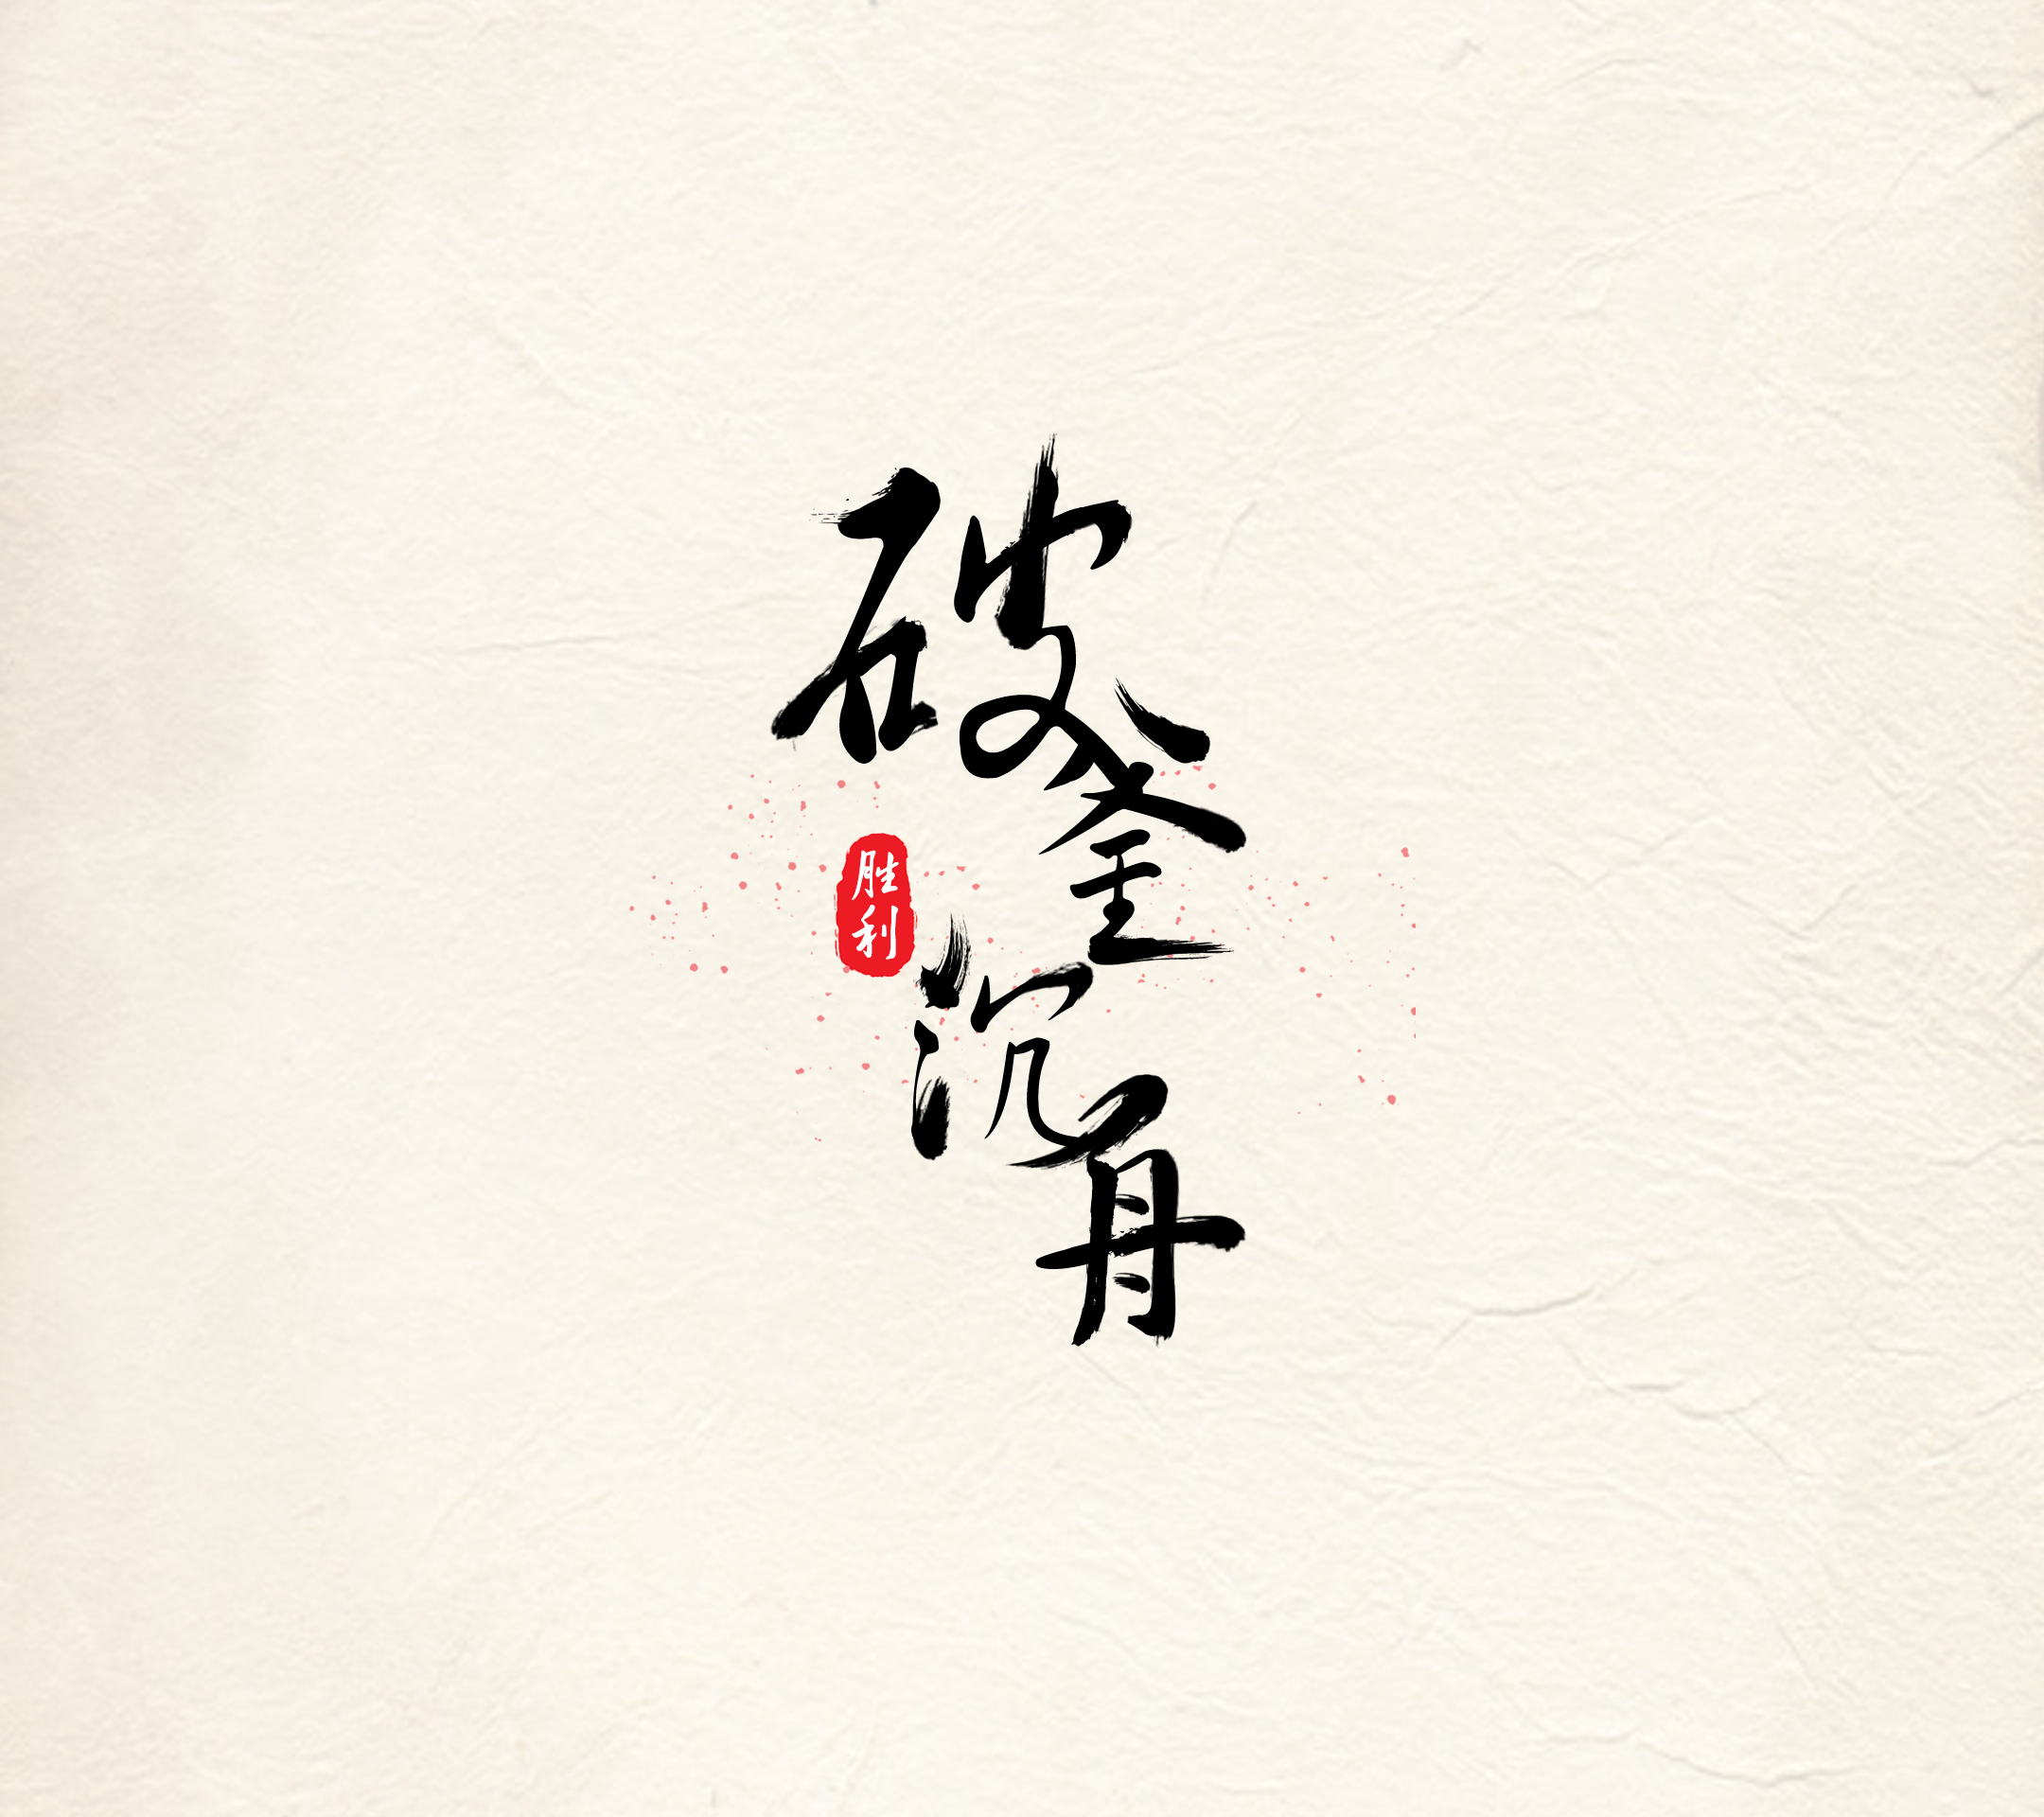 破釜沉舟
胜利